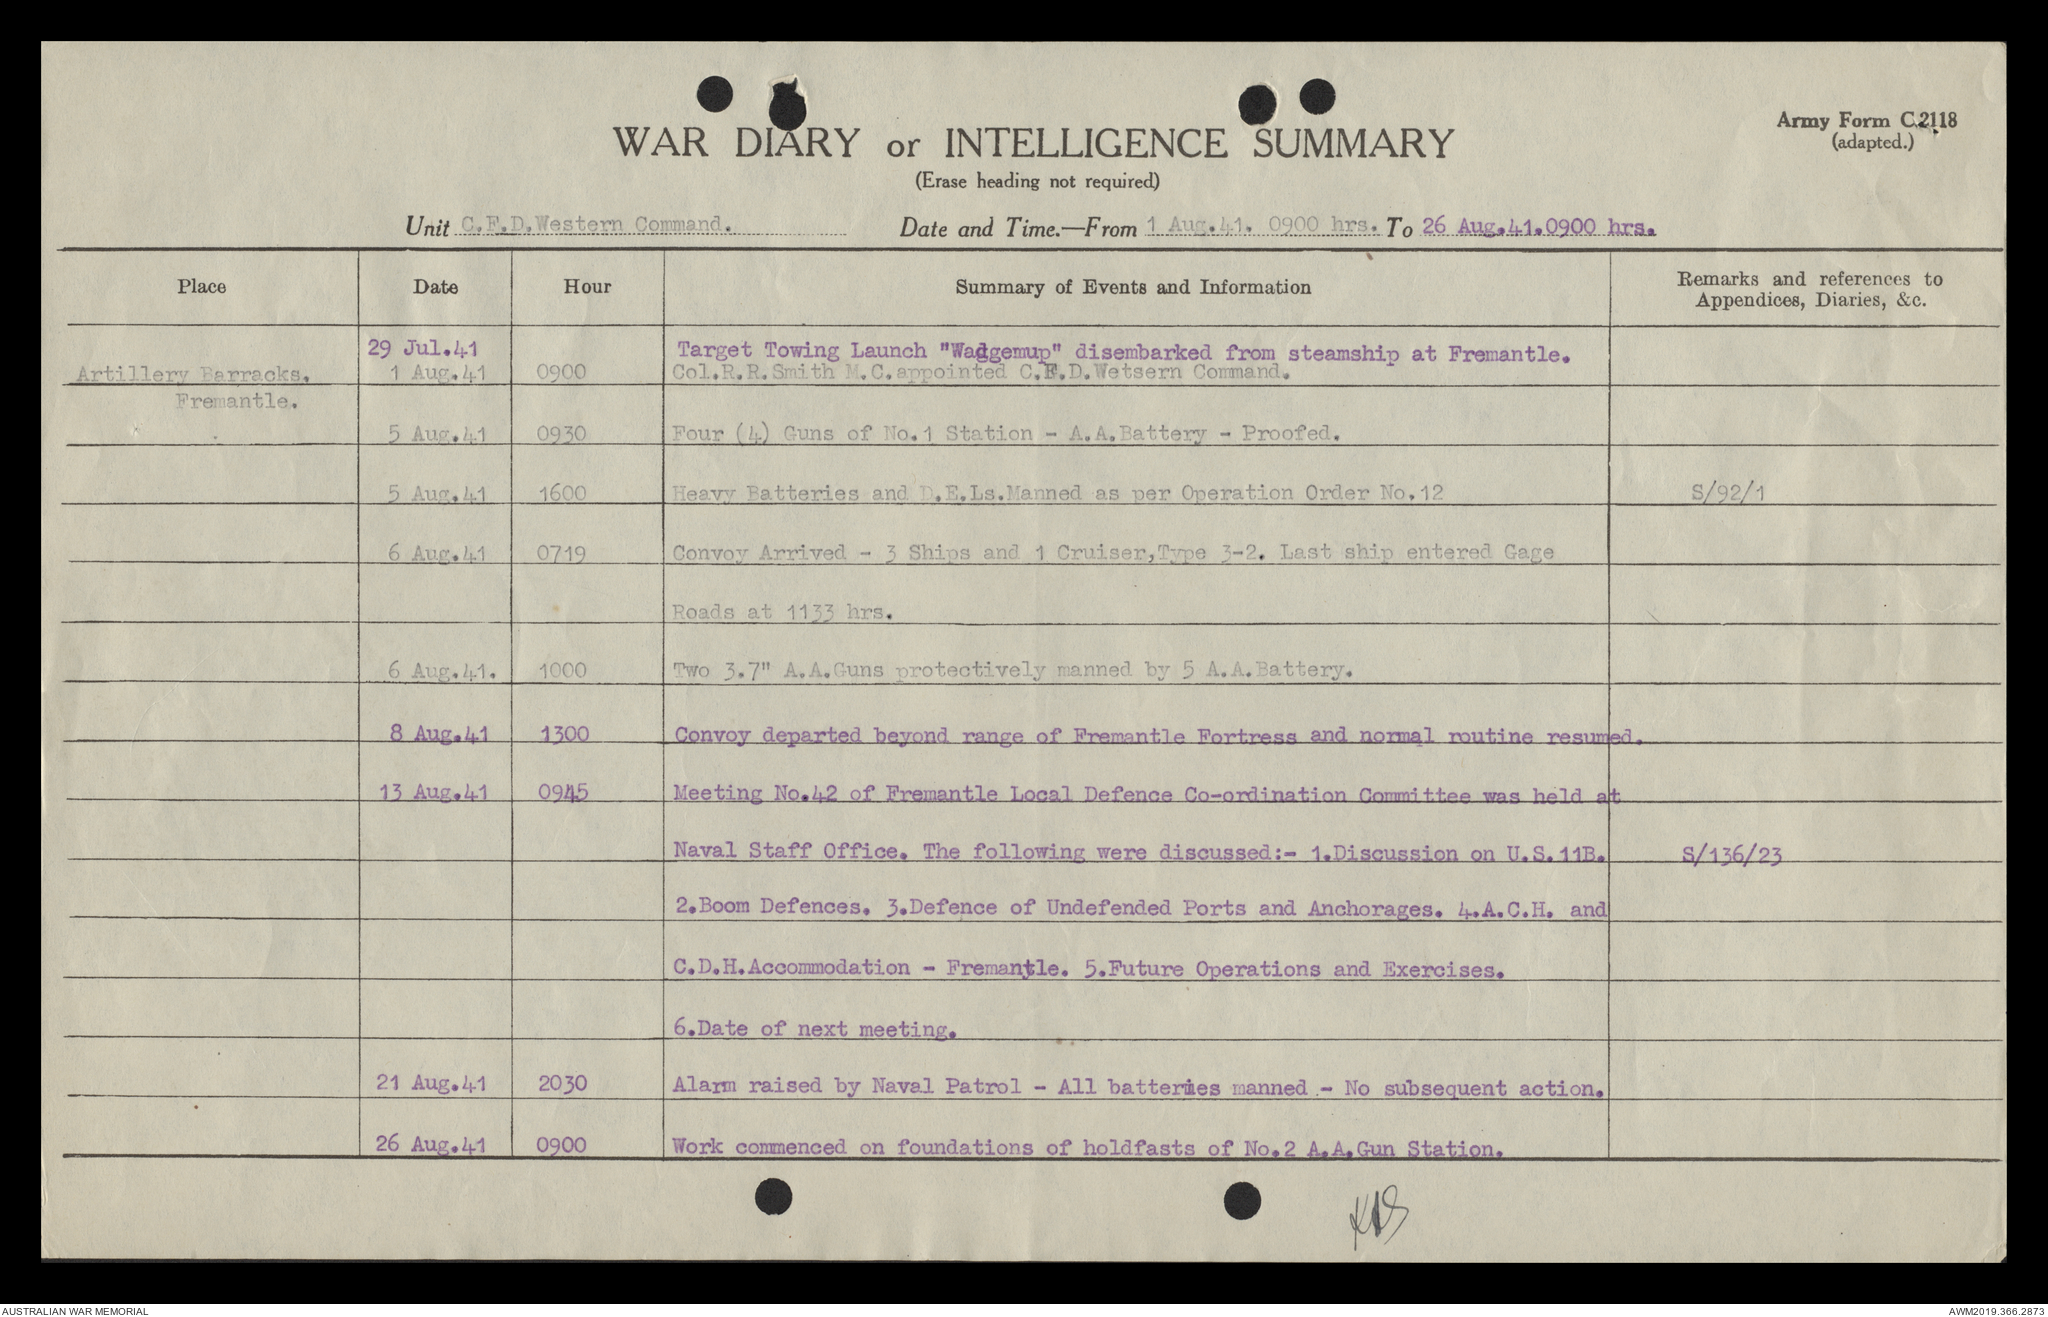 WAR DIARY or INTELLIGENCE SUMMARY
Army Form C.2118
(adapted.)
(Erase heading not required)
Unit C.F.D.Western Command. Date and Time.—From 1 Aug.41. 0900 hrs. To 26 Aug.41.0900 hrs.
Place Date Hour Summary of Events and Information Remarks and references to
Appendices, Diaries, &c.
29 Jul.41 Target Towing Launch "Wadgemup" disembarked from steamship at Fremantle.
Artillery Barracks. 1 Aug.41 0900 Col.R.R.Smith M.C.appointed C.F.D.Wetsern Command.
Fremantle.
5 Aug.41 0930 Four (4) Guns of No.1 Station - A.A.Battery - Proofed.
5 Aug.41 1600 Heavy Batteries and D.E.Ls.Manned as per Operation Order No.12 S/92/1
6 Aug.41 0719 Convoy Arrived - 3 Ships and 1 Cruiser,Type 3-2. Last ship entered Gage
Roads at 1133 hrs.
6 Aug.41. 1000 Two 3.7" A.A.Guns protectively manned by 5 A.A.Battery.
8 Aug.41 1300 Convoy departed beyond range of Fremantle Fortress and normal routine resumed.
13 Aug.41 0945 Meeting No.42 of Fremantle Local Defence Co-ordination Committee was held at
Naval Staff Office. The following were discussed:- 1.Discussion on U.S.11B. S/136/23
2.Boom Defences. 3.Defence of Undefended Ports and Anchorages. 4.A.C.H. and
C.D.H.Accommodation - Fremantle. 5.Future Operations and Exercises.
6.Date of next meeting.
21 Aug.41 2030 Alarm raised by Naval Patrol - All batteries manned - No subsequent action.
26 Aug.41 0900 Work commenced on foundations of holdfasts of No.2 A.A.Gun Station.
AUSTRALIAN WAR MEMORIAL AWM2019.366.2873